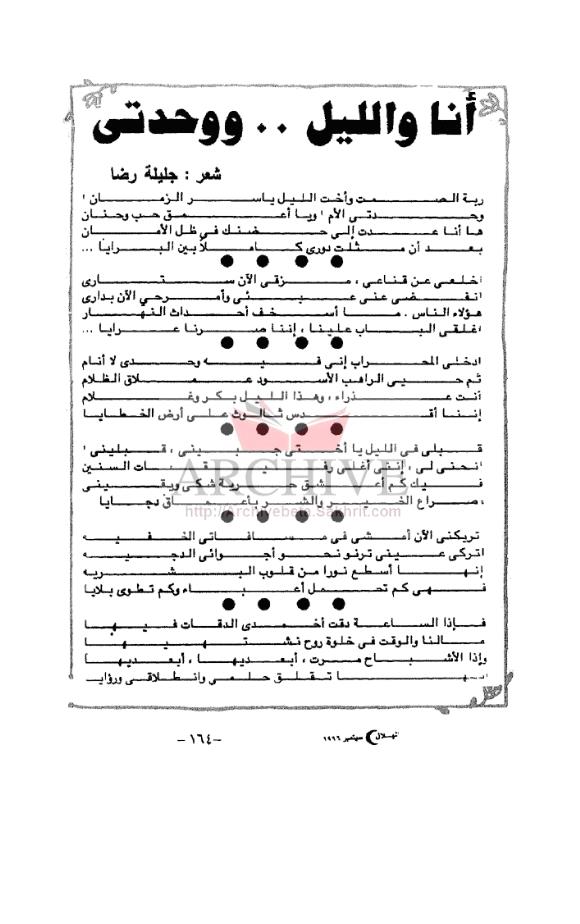 أنا والليل .. ووحدتى
شعر : جليلة رضا
ربة الصمت وأخت الليل ياسر الزمان !
وحدتى الأم ! ويا أعمق حب وحنان
ها أنا عدت إلى حضنك فى ظل الأمان
بعد أن مثلت دورى كاملاً بين البرايا ...
اخلعى عن قناعى ، مزقى الآن ستارى
انفضى عنى عبئى وأمرحي الآن بدارى
هؤلاء الناس . ما أسخف أحداث النهار
اغلقى الباب علينا ، إننا صرنا عرايا ...
ادخلى المحراب إنى فيه وحدى لا أنام
ثم حيى الراهب الأسود عملاق الظلام
أنت عذراء ، وهذا الليل بكر وغلام
إننا أقدس ثالوث على أرض الخطايا
قبلى فى الليل يا أختى جبينى ، قبلينى !
انحنى لى ، إننى أغلى رفيقات السنين
فيك كم أعشق حرية شكى ويقينى
، صراع الخير والشر بأعماق دجايا
تريكنى الآن أمشى فى مسافاتى الخفيه
اتركى عينى ترنو نحو أجوائى الدجيه
إنها أسطع نورا من قلوب البشريه
فهى كم تحمل أعباء وكم تطوى بلايا
فإذا الساعة دقت أخمدى الدقات فيها
مالنا والوقت فى خلوة روح نشتهيها
وإذا الأشباح مرت ، أبعديها ، أبعديها
إنها تقلق حلمى وانطلاقى ورؤايا
ARCHIVE
http://Archivebeta.Sakhrit.com
الهلال سبتمبر ١٩٩٦
-١٦٤-